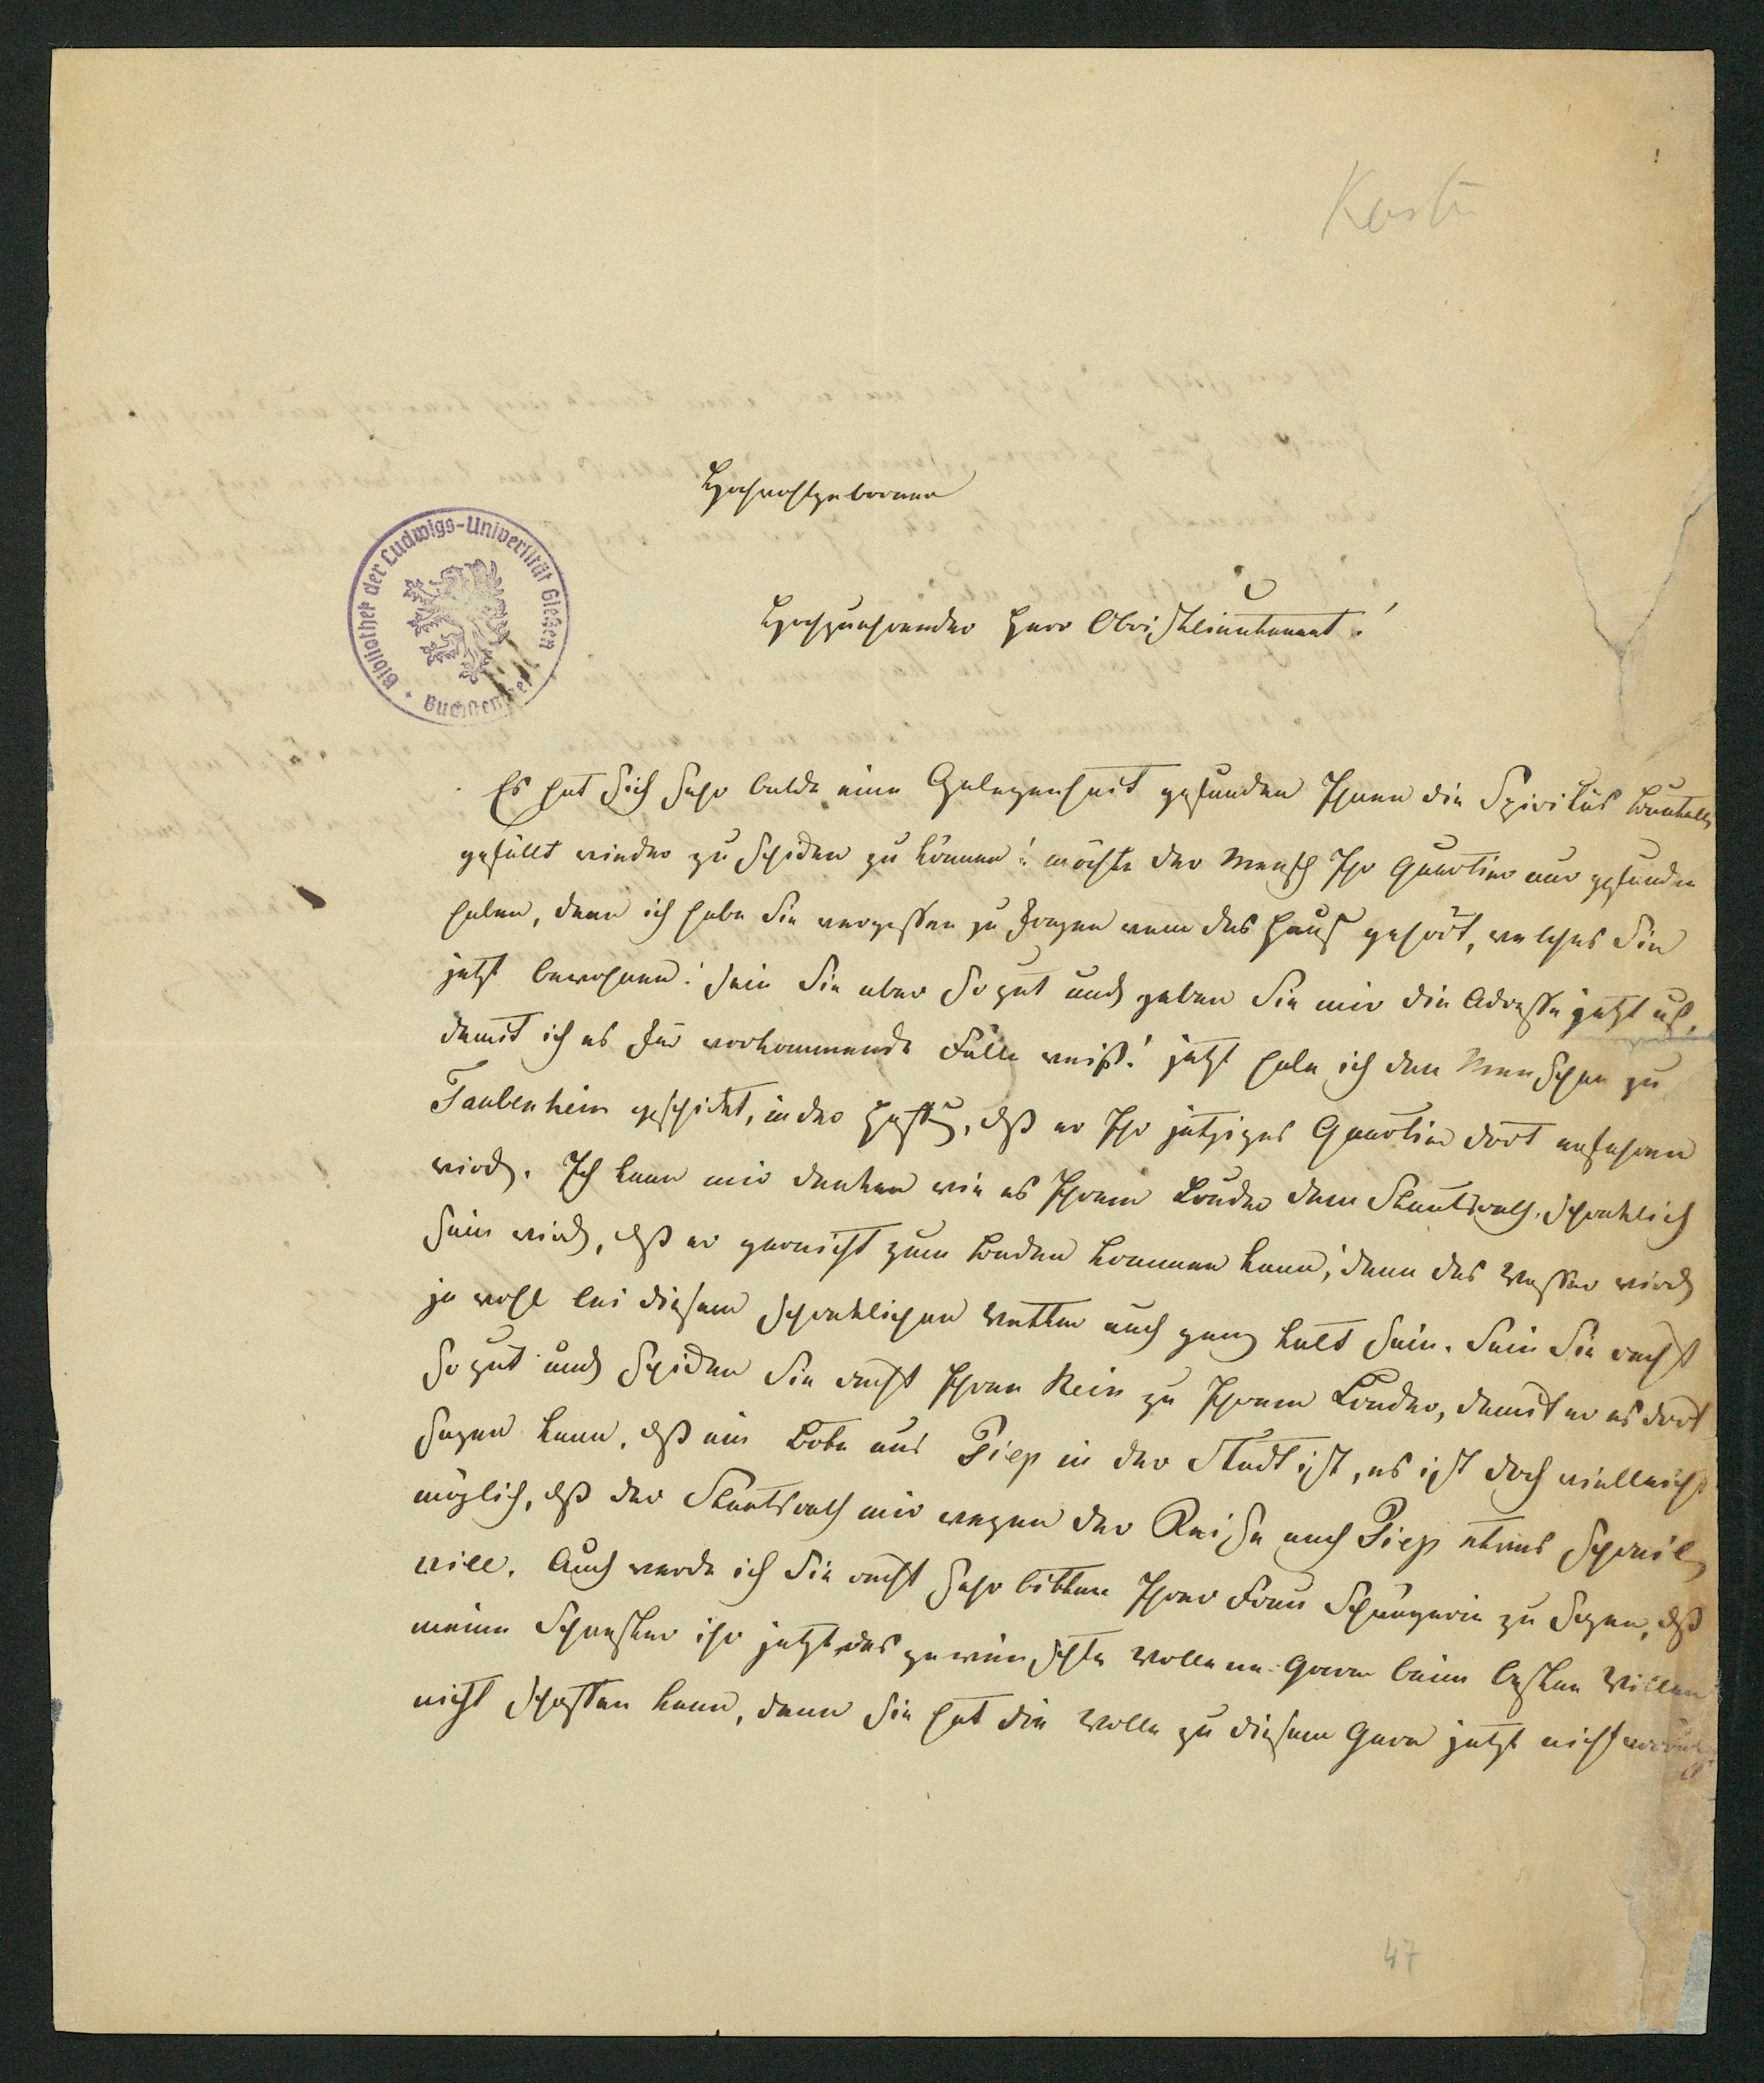 Hochwohlgeborner
Hochzuehrender Herr Obristlieutenant!
Es hat sich sehr balde eine Gelegenheit gefunden Ihnen die Spiritus
gefüllt wieder zu schiken zu können! möchte der Mensch Ihr Quartier nur gefunden
haben, denn ich habe Sie vergessen zu fragen wem das Hauß gehört, welches Sie
jetzt bewohnen! sein Sie aber so gut und geben Sie mir die Adresse jetzt
damit ich es für vorkommende Fälle weiß! jetzt habe ich den Menschen zu
Taubenheim geschickt, in der, dß er Ihr jetziges Quartier dort erfahren
wird. Ich kann mir denken wie es Ihrem Bruder dem Staatsrath schreklich
sein wird, dß er garnicht zum baden kommen kann, denn das Wasser wird
ja wohl bei diesem schreklichen Wetter auch ganz kalt sein. Sein Sie recht
so gut und schiken Sie recht Ihren Rein zu Ihrem Bruder, damit er es dort
sagen kann, dß ein Bote aus Piep in der Stadt ist, es ist doch vielleicht
möglich, dß der Staatsrath mir wegen der Reise nach Piep etwas
will. Auch werde ich Sie recht sehr bitten Ihrer Frau Schwägerin zu sagen, dß
meine Schwester ihr jetzt das gewünschte wollene Garn beim besten Willen
nicht schaffen kann, denn sie hat die Wolle zu diesem Garn jetzt nicht
47
Bibliothek der Ludwigs-Universität Gießen